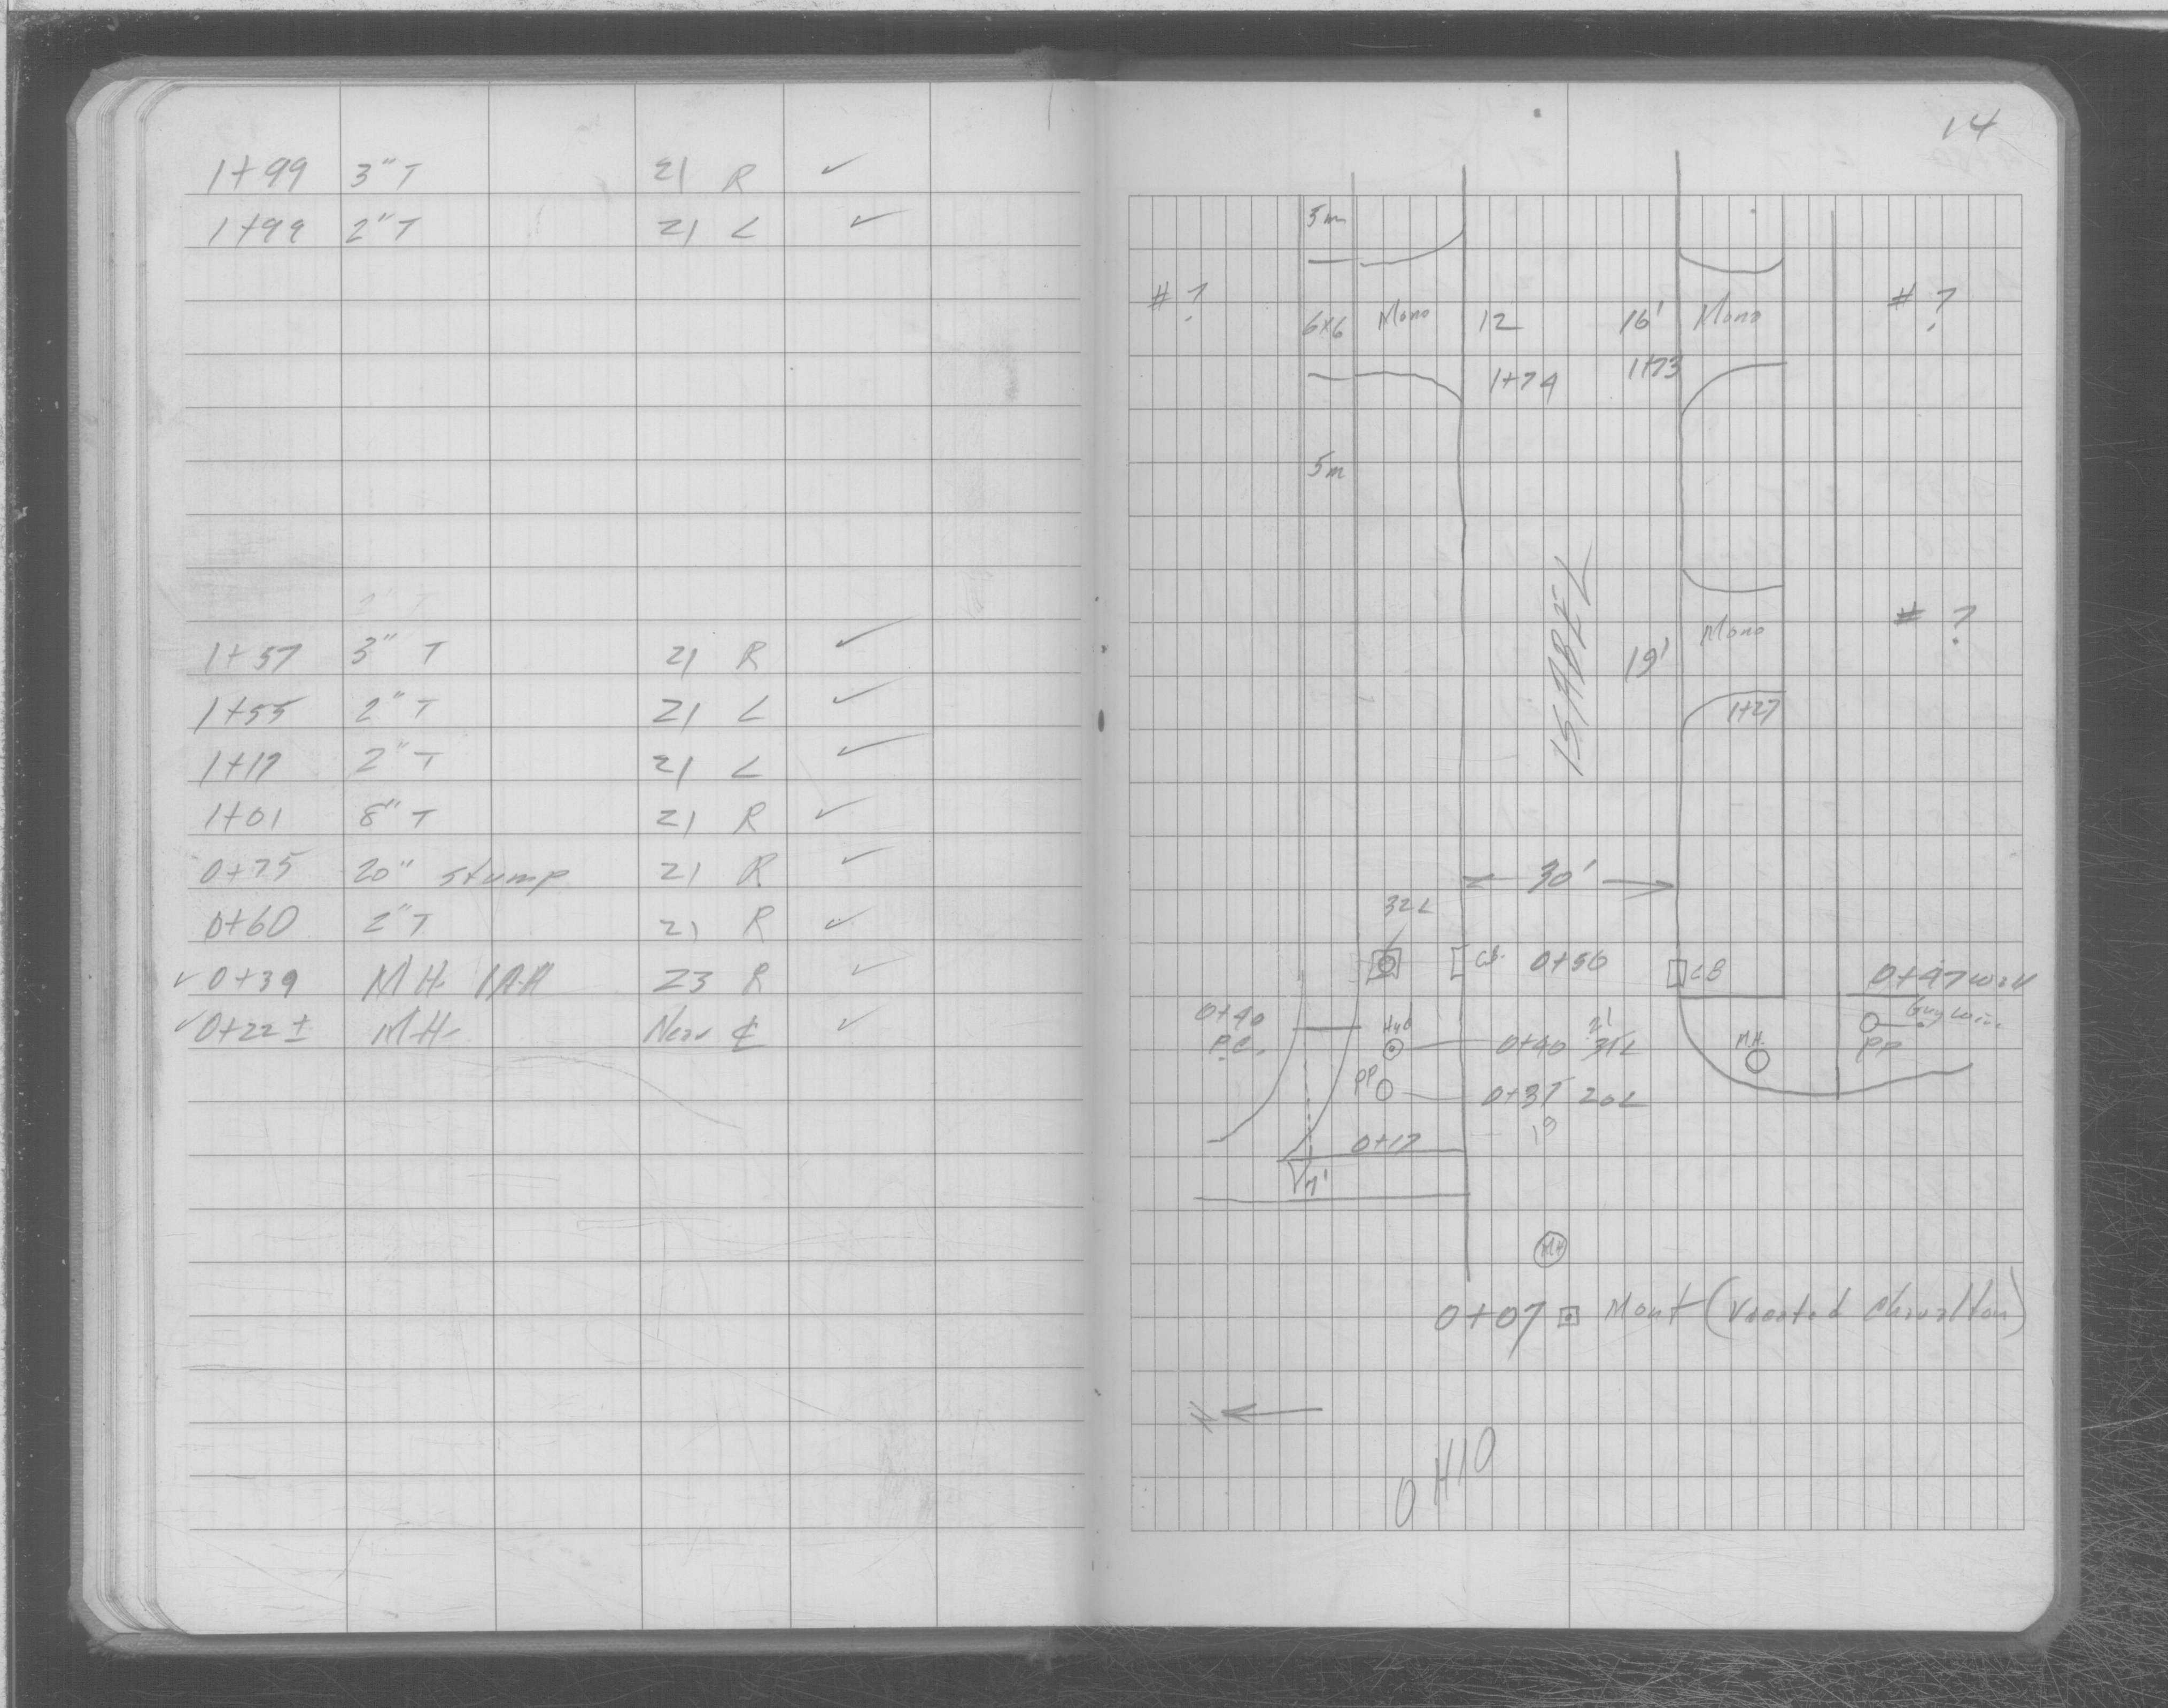 1+99 3" T 21 R ✓
1+99 2" T 21 L ✓
2" T
1+57 3" T 21 R ✓
1+55 2" T 21 L ✓
1+17 2" T 21 L ✓
1+01 8" T 21 R ✓
0+75 20" stump 21 R ✓
0+60 2" T 21 R ✓
✓ 0+39 MH 23 R ✓
✓ 0+22 ± MH Near ℄ ✓
14
5m
# ? 6x6 Mono 12 16' Mono # ?
1+74 1+73
5m
ISABEL
19' Mono # ?
1+27
30'
32L
CB. 0+50 CB 0+47 wall
0+40 Hyd 21 Guy wire
P.C. 0+40 31L M.H. PP
PP 0+37 20L
19
0+17
7'
MH
0+07 Mont (Vacated Charlton)
N
OHIO